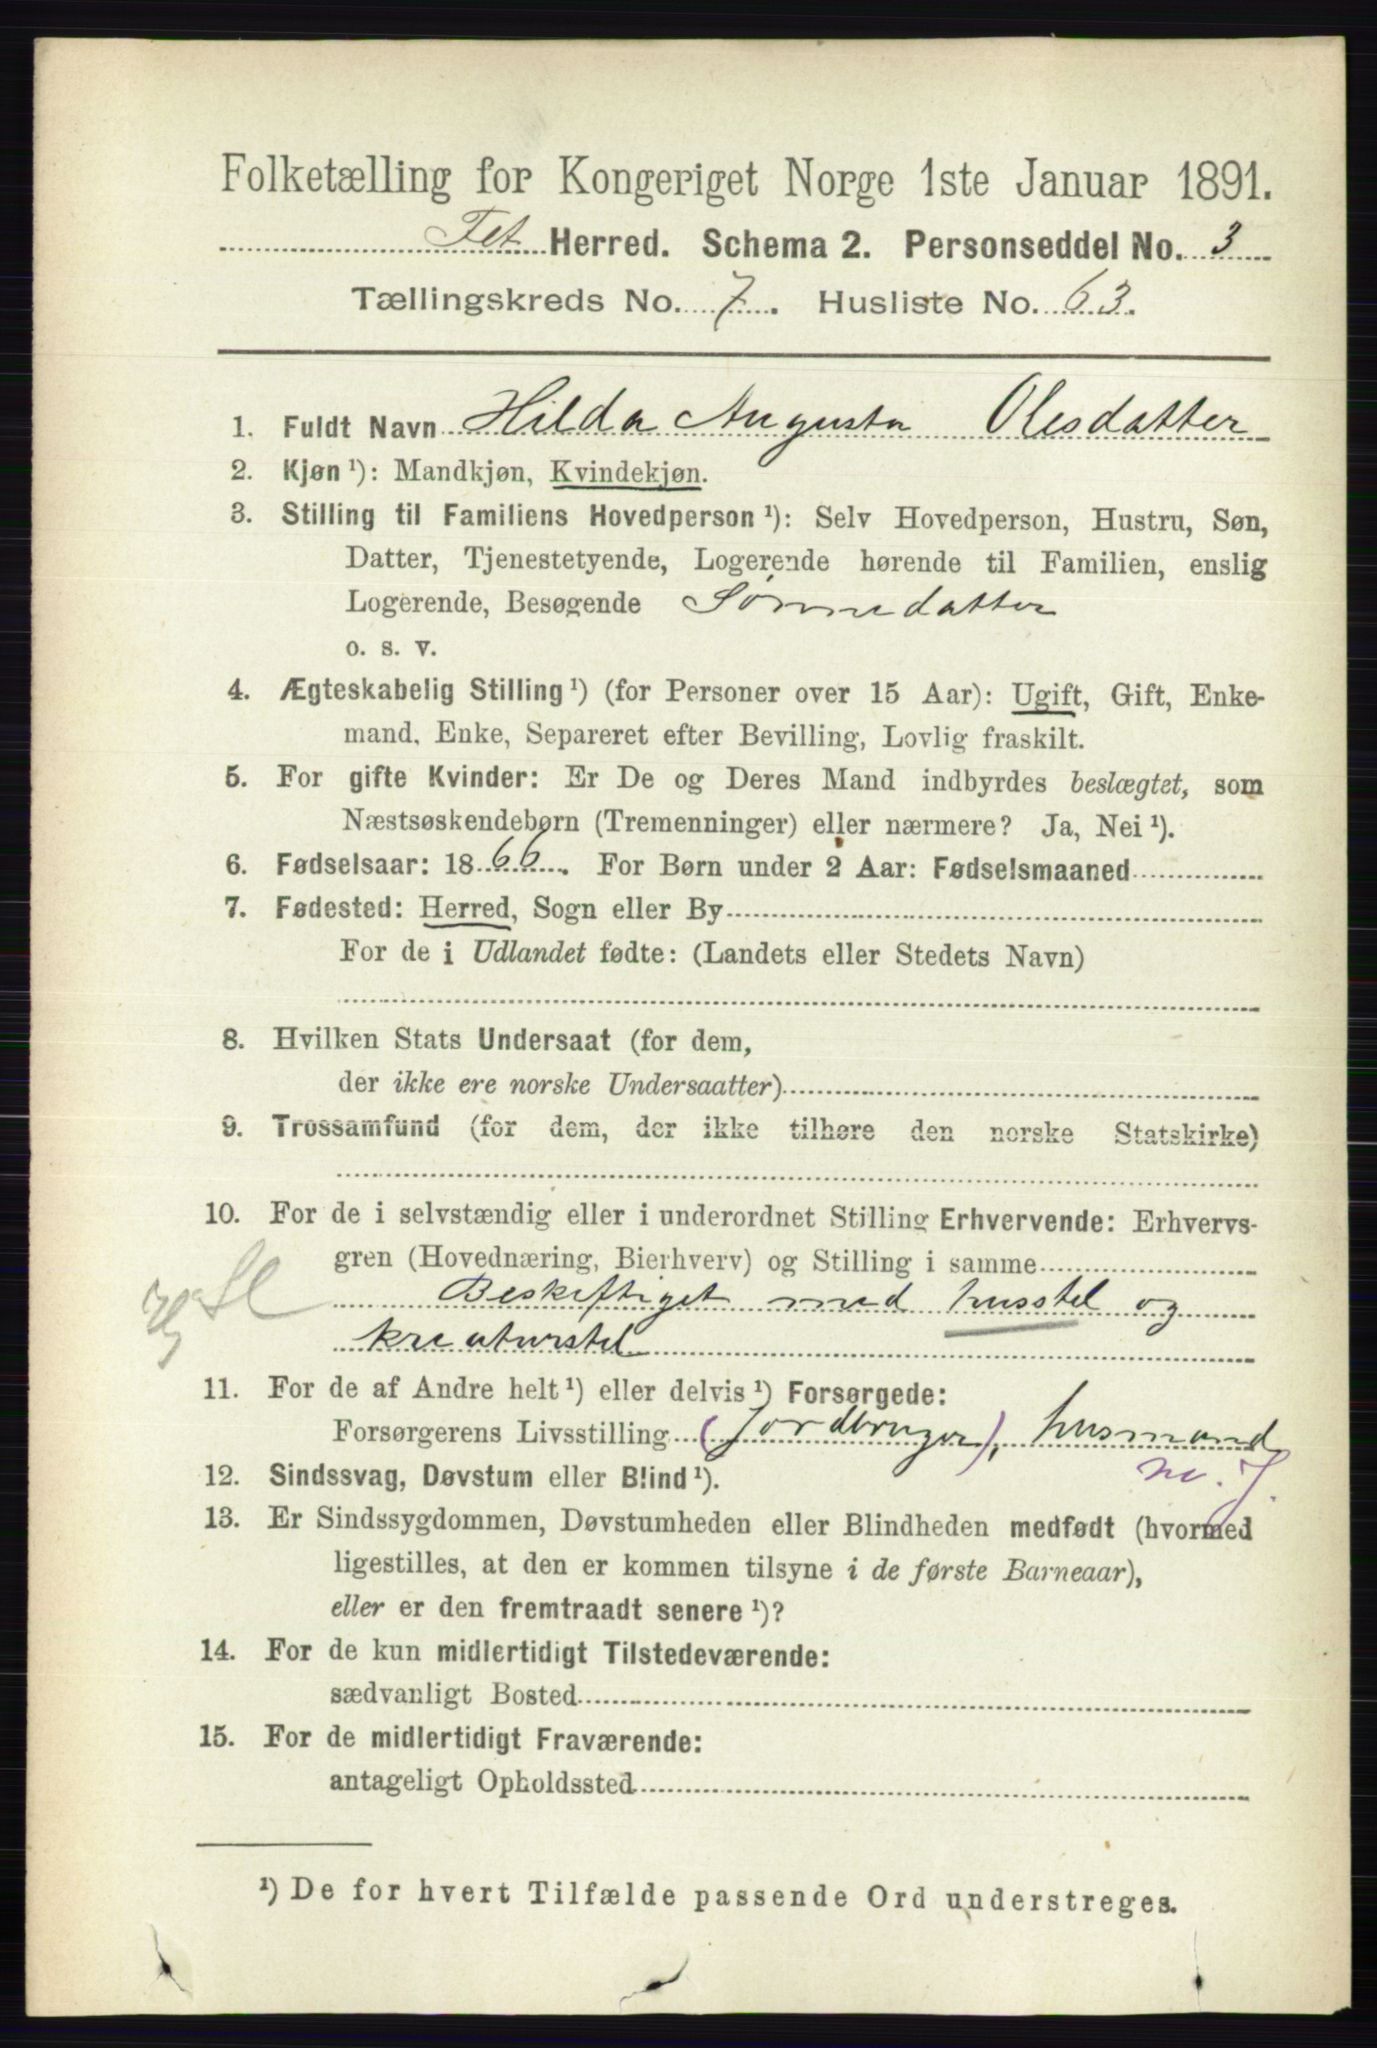 Folketælling for Kongeriget Norge 1ste Januar 1891.
Fet Herred. Schema 2. Personseddel No. 3
Tællingskreds No. 7. Husliste No. 63.
1. Fuldt Navn Hilda Augusta Olesdatter
2. Kjøn ¹): Mandkjøn, Kvindekjøn.
3. Stilling til Familiens Hovedperson ¹): Selv Hovedperson, Hustru, Søn,
Datter, Tjenestetyende, Logerende hørende til Familien, enslig
Logerende, Besøgende Sønnedatter
o. s. v.
4. Ægteskabelig Stilling ¹) (for Personer over 15 Aar): Ugift, Gift, Enke-
mand, Enke, Separeret efter Bevilling, Lovlig fraskilt.
5. For gifte Kvinder: Er De og Deres Mand indbyrdes beslægtet, som
Næstsøskendebørn (Tremenninger) eller nærmere? Ja, Nei ¹).
6. Fødselsaar: 1866. For Børn under 2 Aar: Fødselsmaaned
7. Fødested: Herred, Sogn eller By
For de i Udlandet fødte: (Landets eller Stedets Navn)
8. Hvilken Stats Undersaat (for dem,
der ikke ere norske Undersaatter)
9. Trossamfund (for dem, der ikke tilhøre den norske Statskirke)
10. For de i selvstændig eller i underordnet Stilling Erhvervende: Erhvervs-
gren (Hovednæring, Bierhverv) og Stilling i samme
Beskeftiget med husstel og
kreaturstel
11. For de af Andre helt ¹) eller delvis ¹) Forsørgede:
Forsørgerens Livsstilling (Jordbruger), husmand
m. J.
12. Sindssvag, Døvstum eller Blind ¹).
13. Er Sindssygdommen, Døvstumheden eller Blindheden medfødt (hvormed
ligestilles, at den er kommen tilsyne i de første Barneaar),
eller er den fremtraadt senere ¹)?
14. For de kun midlertidigt Tilstedeværende:
sædvanligt Bosted
15. For de midlertidigt Fraværende:
antageligt Opholdssted
¹) De for hvert Tilfælde passende Ord understreges.